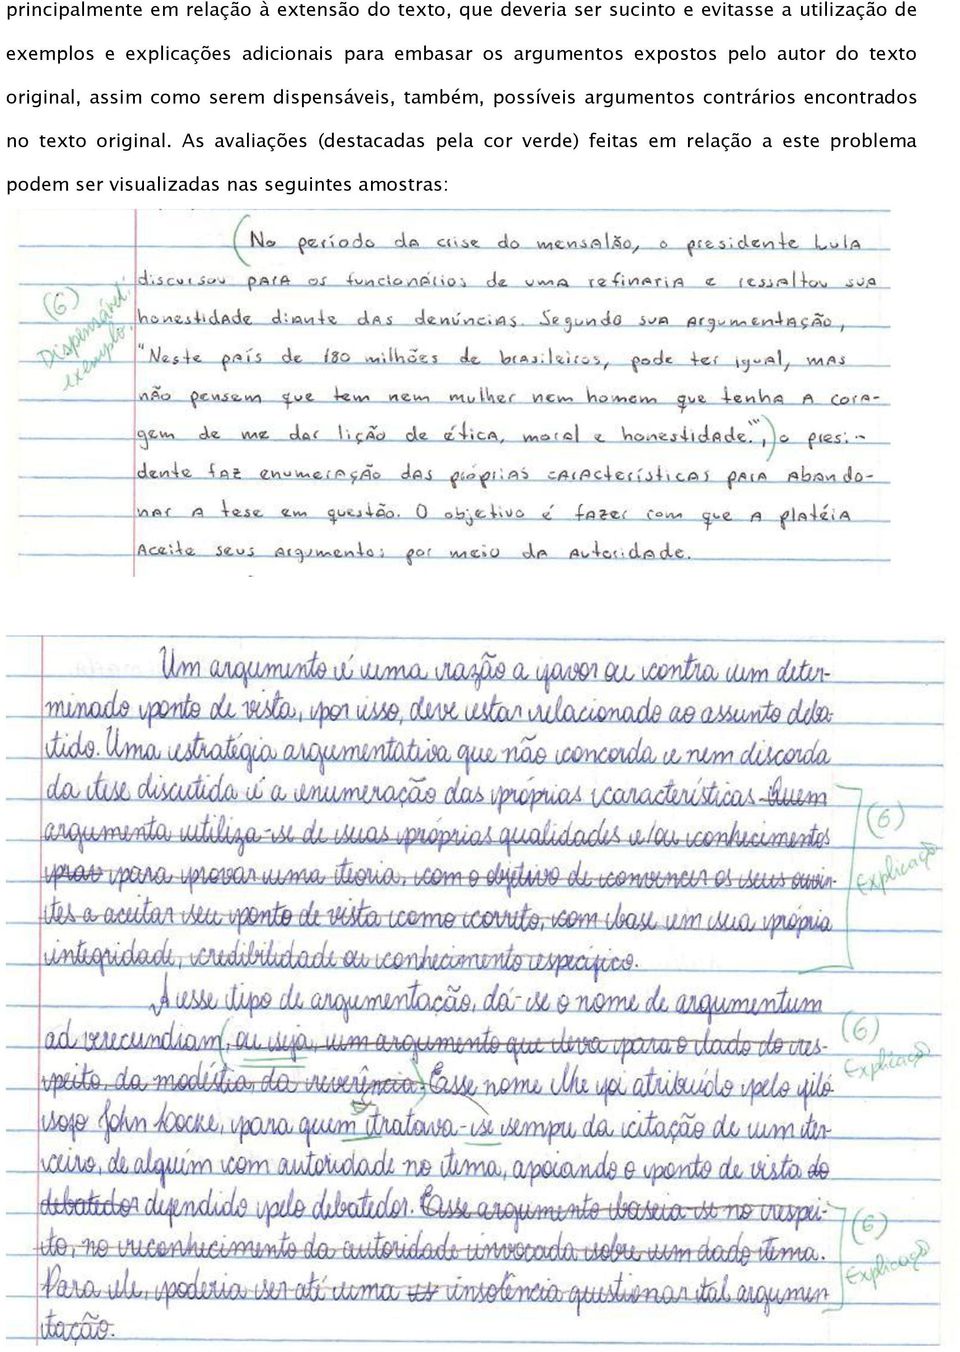 principalmente em relação à extensão do texto, que deveria ser sucinto e evitasse a utilização de
exemplos e explicações adicionais para embasar os argumentos expostos pelo autor do texto
original, assim como serem dispensáveis, também, possíveis argumentos contrários encontrados
no texto original. As avaliações (destacadas pela cor verde) feitas em relação a este problema
podem ser visualizadas nas seguintes amostras:
(No período da crise do mensalão, o presidente Lula
discursou para os funcionários de uma refinaria e ressaltou sua
(6) Dispensável: exemplo.
honestidade diante das denúncias. Segundo sua argumentação,
"Neste país de 180 milhões de brasileiros, pode ter igual, mas
não pensem que tem nem mulher nem homem que tenha a cora-
gem de me dar lição de ética, moral e honestidade.",) o presi-
dente faz enumeração das próprias características para abando-
nar a tese em questão. O objetivo é fazer com que a platéia
aceite seus argumentos por meio da autoridade.
Um argumento é uma razão a favor ou contra um deter-
minado ponto de vista, por isso, deve estar relacionado ao assunto deba-
tido. Uma estratégia argumentativa que não concorda e nem discorda
da tese discutida é a enumeração das próprias características. Quem
argumenta utiliza-se de suas próprias qualidades e/ou conhecimentos
(6) Explicação
para provar uma teoria, com o objetivo de convencer os seus ouvin-
tes a aceitar seu ponto de vista como correto, com base em sua própria
integridade, credibilidade ou conhecimento específico.
A esse tipo de argumentação, dá-se o nome de argumentum
ad verecundiam(, ou seja, um argumento que deva para o lado do res-
(6) Explicação
peito, da modéstia da reverência.) Esse nome lhe foi atribuído pelo filó
sofo John Locke, para quem tratava-se sempre da citação de um ter-
ceiro, de alguém com autoridade no tema, apoiando o ponto de vista do
debatedor defendido pelo debatedor. (Esse argumento baseia-se no respei-
(6) Explicação
to, no reconhecimento da autoridade invocada sobre um dado tema.
Para ele, poderia ser até uma insolência questionar tal argumen
tação.